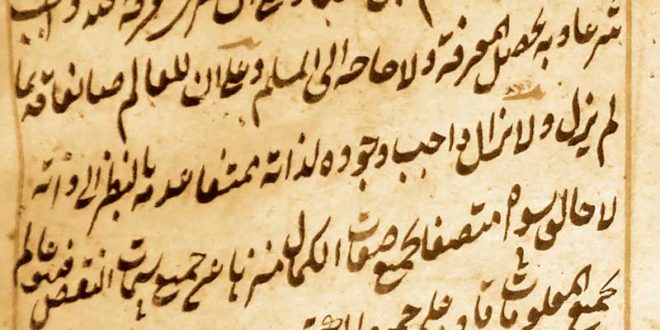 معرفة الله واجب
شرعا وبه يحصل المعرفة ولا حاجه الى المعلم وعلى ان للعالم صانعا قديما
لم يزل ولا يزال واجب وجوده لذاته ممتنعا عدمه بالنظر الى ذاته
لا خالق سواه متصفا بجميع صفات الكمال منزها عن جميع سمات النقص فهو عالم
بجميع المعلومات قادر على جميع